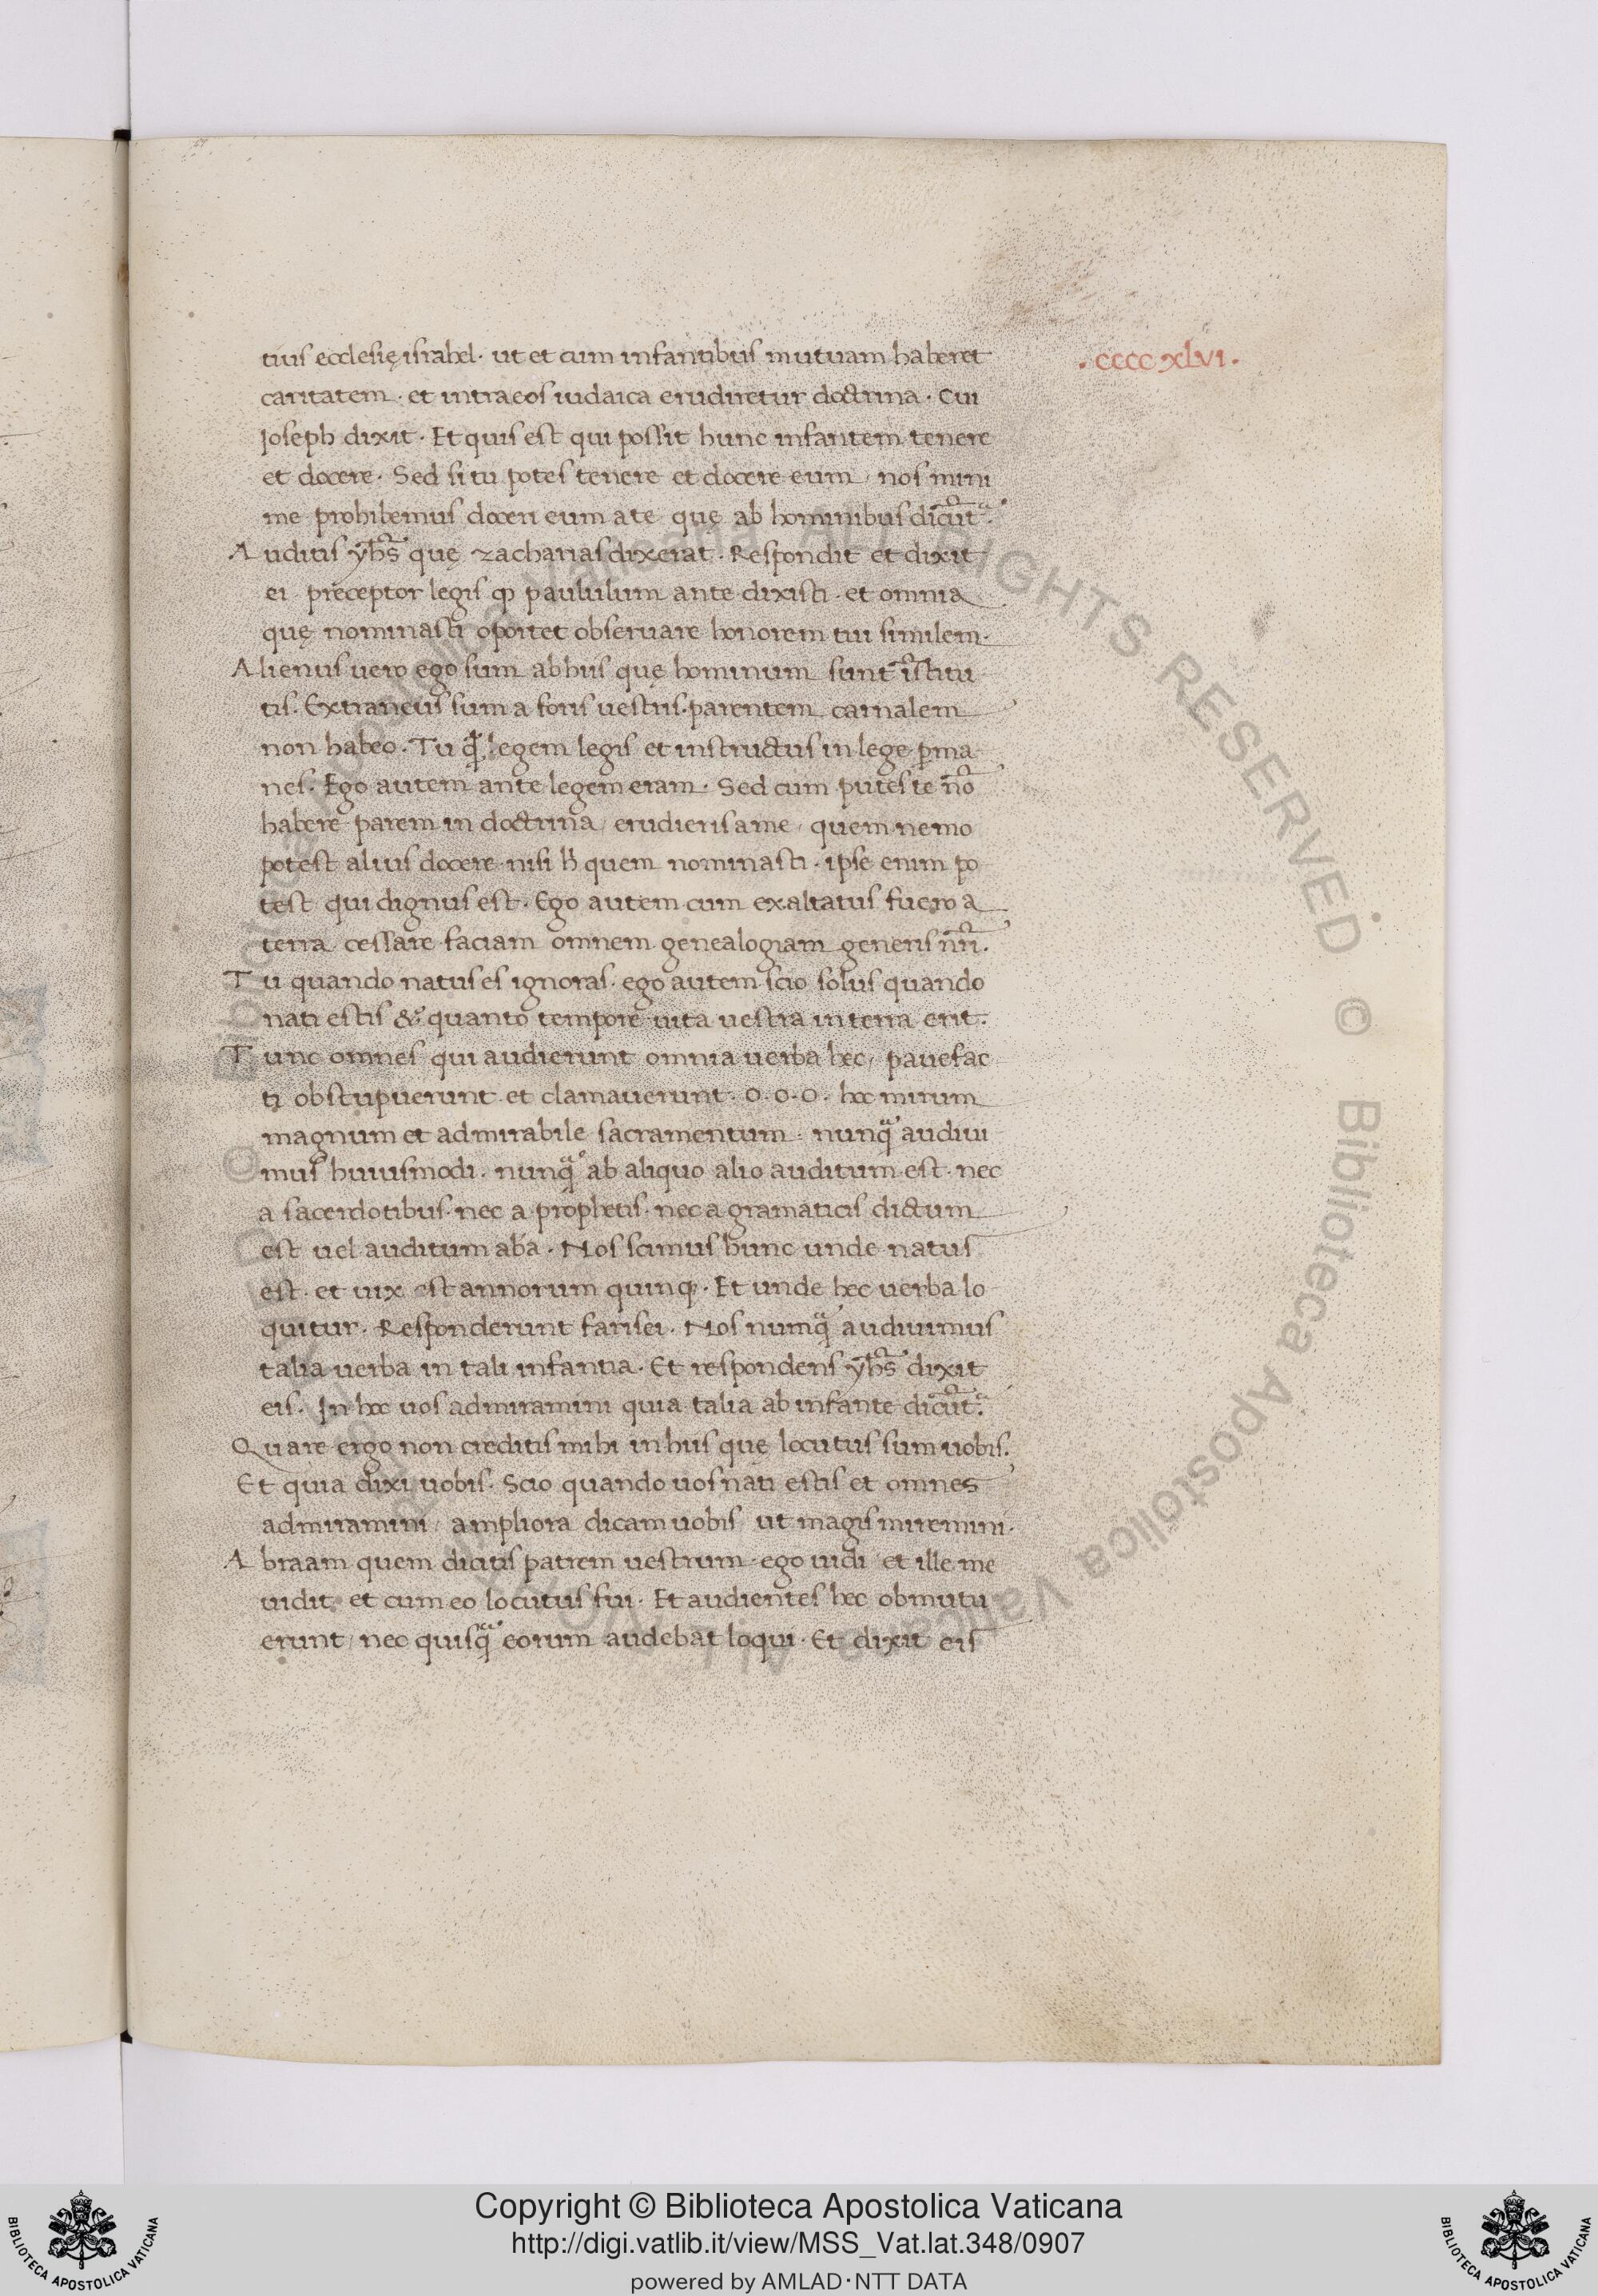 tius ecclesię israhel · ut et cum infantibus mutuam haberet
.cccc xlvi.
caritatem · et intra eos iudaica erudiretur doctrina · Cui
Ioseph dixit · Et quis est qui possit hunc infantem tenere
et docere · Sed si tu potes tenere et docere eum / nos mini
me prohibemus doceri eum a te quę ab hominibus dicūt᷑.
Auditis yħs que zacharias dixerat · Respondit et dixit
ei preceptor legis ꝙ paululum ante dixisti · et omnia
quę nominasti oportet obseruare honorem tui similem ·
Alienus uero ego sum ab hiis quę hominum sunt īstitu
tis · Extraneus sum a foris uestris · parentem carnalem
non habeo · Tu legem legis et instructus in lege ꝑma
nes · Ego autem ante legem eram · Sed cum putes te nō
habere parem in doctrina / erudieris a me / quem nemo
potest alius docere · nisi h̵ quem nominasti · ipse enim po
test qui dignus est · Ego autem cum exaltatus fuero a
terra cessare faciam omnem genealogiam generis nr̄i.
Tu quando natus es ignoras · ego autem scio solus quando
nati estis & quanto tempore uita uestra in terra erit ·
Tunc omnes qui audierunt omnia uerba hec / pauefac
ti obstupuerunt et clamauerunt · o · o · o · hoc mirum
magnum et admirabile sacramentum · nunq̄ audiui
mus huiusmodi · nunq̄ ab aliquo alio auditum est · nec
a sacerdotibus · nec a prophetis · nec a gramaticis dictum
est uel auditum aba · Nos scimus hunc unde natus
est · et uix est annorum quinq; · Et unde hec uerba lo
quitur · Responderunt farisei · Nos numq̄ audiuimus
talia uerba in tali infantia · Et respondens yħs dixit
eis · In hoc uos admiramini quia talia ab infante dicūt᷑.
Quare ergo non creditis mihi in hiis quę locutus sum uobis.
Et quia dixi uobis · Scio quando uos nati estis et omnes
admiramini / ampliora dicam uobis / ut magis miremini ·
Abraam quem dicitis patrem uestrum · ego uidi et ille me
uidit et cum eo locutus fui · Et audientes hec obmutu
erunt / nec quisq̄ eorum audebat loqui · Et dixit eis
© Biblioteca Apostolica Vaticana ALL RIGHTS RESERVED
Copyright © Biblioteca Apostolica Vaticana
http://digi.vatlib.it/view/MSS_Vat.lat.348/0907
powered by AMLAD·NTT DATA
BIBLIOTECA APOSTOLICA VATICANA
BIBLIOTECA APOSTOLICA VATICANA